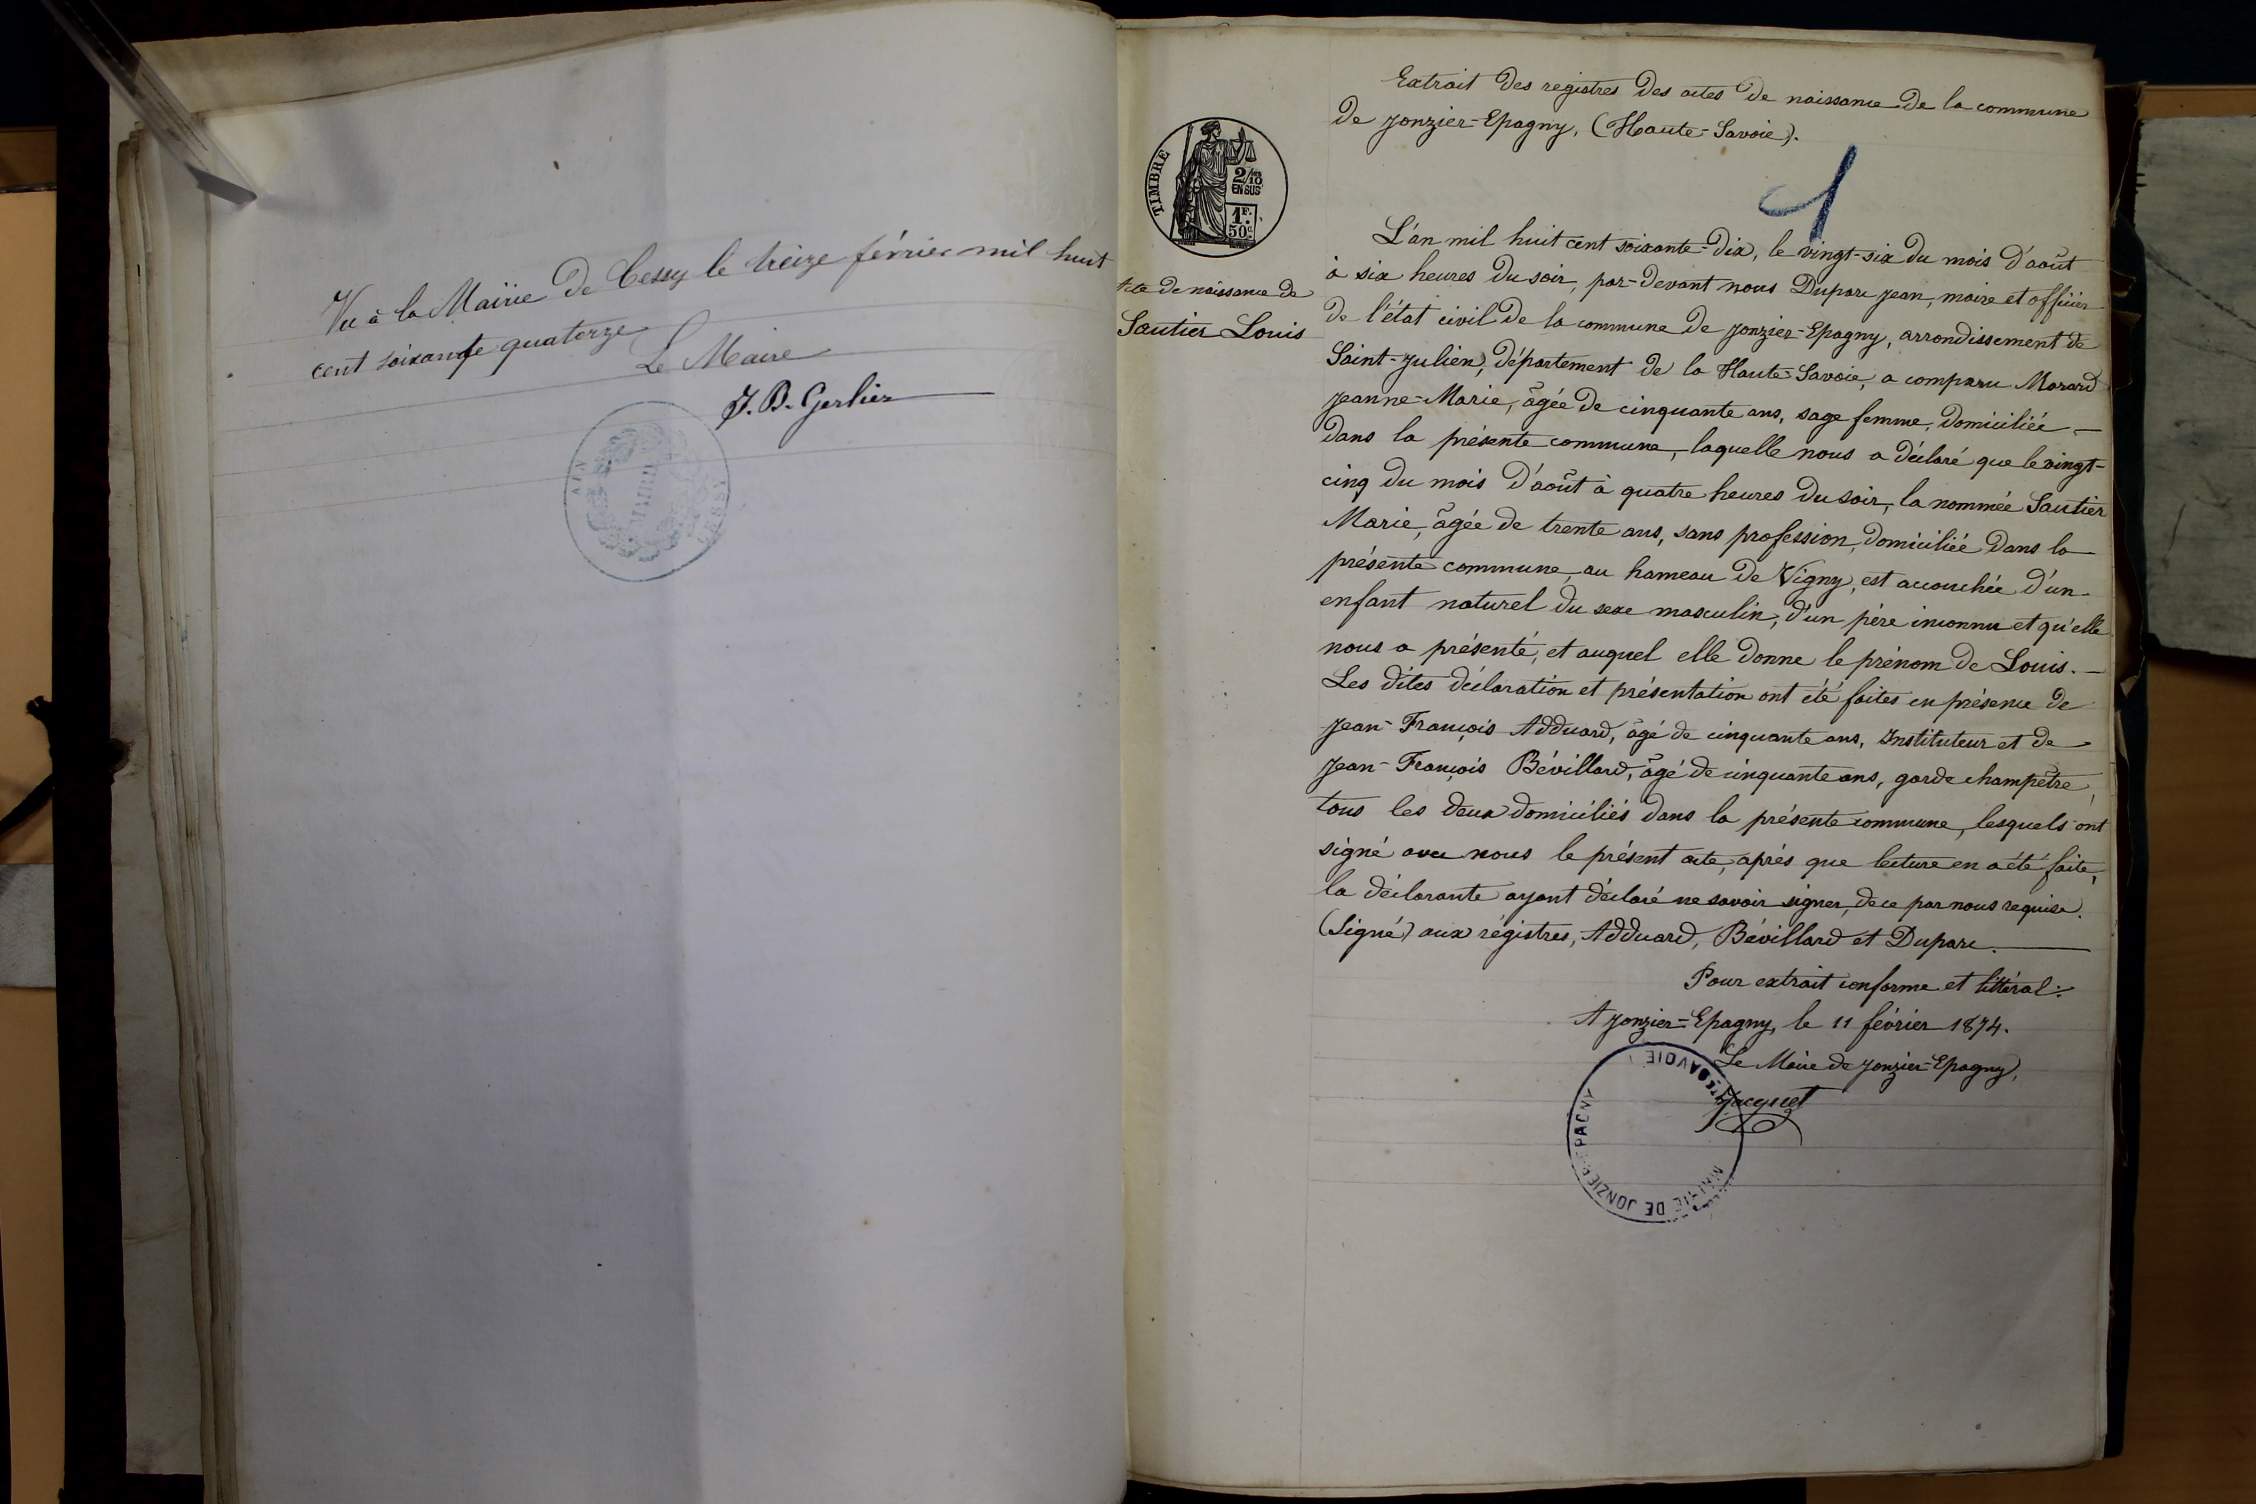 Vu à la Mairie de Cessy le treize février mil huit
cent soixante quatorze
Le Maire
J. B. Gerlier
AIN
MAIRIE
CESSY
TIMBRE
2/10
EN SUS
1F.
50c
Acte de naissance de
Sautier Louis
Extrait des registres des actes de naissance de la commune
de Jonzier-Epagny, (Haute-Savoie).
1
L'an mil huit cent soixante-dix, le vingt-six du mois d'août
à six heures du soir, par-devant nous Duparc Jean, maire et officier
de l'état civil de la commune de Jonzier-Epagny, arrondissement de
Saint-Julien, département de la Haute-Savoie, a comparu Morard
Jeanne-Marie, âgée de cinquante ans, sage femme, domiciliée —
dans la présente commune, laquelle nous a déclaré que le vingt-
cinq du mois d'août à quatre heures du soir, la nommée Sautier
Marie, âgée de trente ans, sans profession, domiciliée dans la
présente commune, au hameau de Vigny, est accouchée d'un
enfant naturel du sexe masculin, d'un père inconnu et qu'elle
nous a présenté, et auquel elle donne le prénom de Louis. —
Les dites déclaration et présentation ont été faites en présence de
Jean-François Adduard, âgé de cinquante ans, Instituteur et de
Jean-François Bévillard, âgé de cinquante ans, garde champêtre,
tous les deux domiciliés dans la présente commune, lesquels ont
signé avec nous le présent acte, après que lecture en a été faite,
la déclarante ayant déclaré ne savoir signer, de ce par nous requise.
(Signé) aux régistres, Adduard, Bévillard et Duparc. —
Pour extrait conforme et littéral:
A Jonzier-Epagny, le 11 février 1874.
Le Maire de Jonzier-Epagny,
MAIRIE DE JONZIER-EPAGNY
SAVOIE